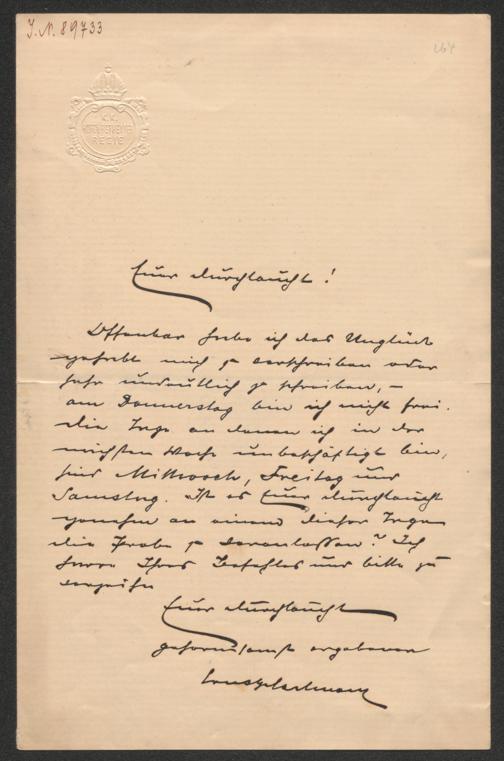 I. N. 89733
264
K.K.
REGIE
Euer Durchlaucht!
Offenbar habe ich das Unglück
gehabt mich zu verschreiben oder
sehr undeutlich zu schreiben, –
am Donnerstag bin ich nicht frei.
Die Tage an denen ich in der
nächsten Woche unbeschäftigt bin,
sind Mittwoch, Freitag und
Samstag. Ist es Euer Durchlaucht
genehm an einem dieser Tage
die Probe zu veranlassen? Ich
harre Ihres Befehles und bitte zu
Euer Durchlaucht
gehorsamst ergebenen
Ernst Hartmann